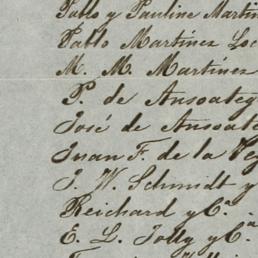 Pablo y Pauline Martin
Pablo Martinez Loc
M. M. Martinez
P. de Ansoateg
José de Ansoate
Juan F. de la Veg
J. W. Schmidt y
Reichard y Cª.
E. L. Jolly y Cª.